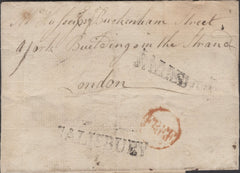 Buckenham Street
York Buildings in the Strand
London
SALISBURY
SALISBURY